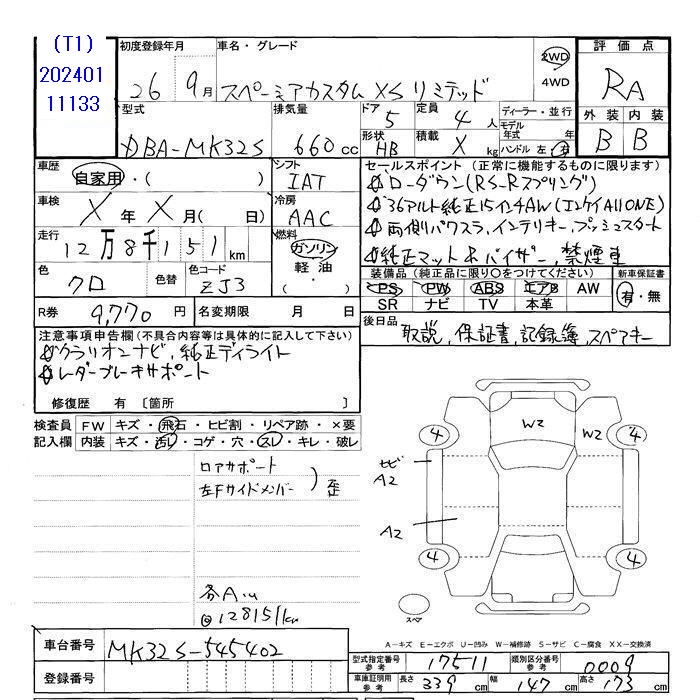 (T1)
202401
11133
初度登録年月
26 9月
車名・グレード
スペーシアカスタム XS リミテッド
2WD
4WD
評価点
RA
外装 内装
B B
型式
DBA-MK32S
排気量
660 cc
ドア
5
定員
4 人
形状
HB
積載
X kg
ディーラー・並行
モデル
年式 年
ハンドル 左・右
車歴
自家用・( )
シフト
IAT
車検
X 年 X 月( 日)
冷房
AAC
走行
12万8千151km
燃料
ガソリン
軽油
( )
色
クロ
色替
色コード
ZJ3
R券
9,770 円
名変期限 月 日
セールスポイント(正常に機能するものに限ります)
ローダウン(RS-Rスプリング)
36アルト純正15インチAW(エンケイAllONE)
両側パワスラ,インテリキー,プッシュスタート
純正マット&バイザー,禁煙車
装備品(純正品に限り○をつけてください)
PS PW ABS エアB AW
SR ナビ TV 本革
新車保証書
有・無
後日品
取説,保証書,記録簿,スペアキー
注意事項申告欄(不具合内容等は具体的に記入して下さい)
クラリオンナビ,純正デイライト
レーダーブレーキサポート
修復歴 有 〔箇所 〕
検査員
記入欄
FW キズ・飛石・ヒビ割・リペア跡・×要
内装 キズ・汚レ・コゲ・穴・スレ・キレ・破レ
ロアサポート
左Fサイドメンバー
) 歪
各A.u
@128151km
W2
W2
4
4
A2
A2
4
4
スペア
A-キズ E-エクボ U-凹み W-補修跡 S-サビ C-腐食 XX-交換済
車台番号
MK32S-545402
登録番号
型式指定番号
参考
17511
類別区分番号
参考
0009
車庫証明用
参考
長さ 339 cm
幅 147 cm
高さ 173 cm